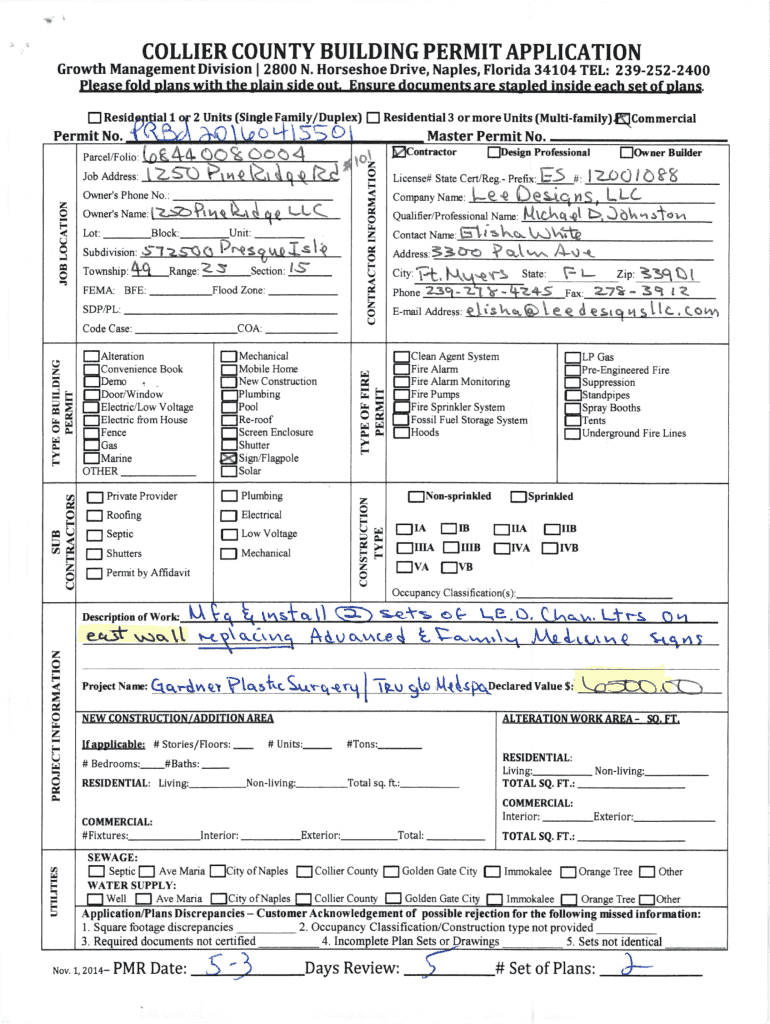 COLLIER COUNTY BUILDING PERMIT APPLICATION
Growth Management Division | 2800 N. Horseshoe Drive, Naples, Florida 34104 TEL: 239-252-2400
Please fold plans with the plain side out. Ensure documents are stapled inside each set of plans.
Residential 1 or 2 Units (Single Family/Duplex) Residential 3 or more Units (Multi-family) Commercial
Permit No. PRBd 20160415501 Master Permit No.
JOB LOCATION
Parcel/Folio: 68440080004
Job Address: 1250 Pine Ridge Rd #101
Owner's Phone No.:
Owner's Name: 1250 Pine Ridge LLC
Lot: Block: Unit:
Subdivision: 572500 Presque Isle
Township: 49 Range: 25 Section: 15
FEMA: BFE: Flood Zone:
SDP/PL:
Code Case: COA:
CONTRACTOR INFORMATION
Contractor Design Professional Owner Builder
License# State Cert/Reg.- Prefix: ES #: 12001088
Company Name: Lee Designs, LLC
Qualifier/Professional Name: Michael D. Johnston
Contact Name: Elisha White
Address: 3300 Palm Ave
City: Ft. Myers State: FL Zip: 33901
Phone 239-278-4245 Fax: 278-3912
E-mail Address: elisha@leedesignsllc.com
TYPE OF BUILDING PERMIT
Alteration Mechanical
Convenience Book Mobile Home
Demo New Construction
Door/Window Plumbing
Electric/Low Voltage Pool
Electric from House Re-roof
Fence Screen Enclosure
Gas Shutter
Marine Sign/Flagpole
OTHER Solar
TYPE OF FIRE PERMIT
Clean Agent System LP Gas
Fire Alarm Pre-Engineered Fire
Fire Alarm Monitoring Suppression
Fire Pumps Standpipes
Fire Sprinkler System Spray Booths
Fossil Fuel Storage System Tents
Hoods Underground Fire Lines
SUB CONTRACTORS
Private Provider Plumbing
Roofing Electrical
Septic Low Voltage
Shutters Mechanical
Permit by Affidavit
CONSTRUCTION TYPE
Non-sprinkled Sprinkled
IA IB IIA IIB
IIIA IIIB IVA IVB
VA VB
Occupancy Classification(s):
PROJECT INFORMATION
Description of Work: Mfg & install (2) sets of L.E.D. Chan. Ltrs on
east wall replacing Advanced & Family Medicine signs
Project Name: Gardner Plastic Surgery / Tru glo Medspa Declared Value $: 6500.00
NEW CONSTRUCTION/ADDITION AREA
If applicable: # Stories/Floors: # Units: #Tons:
# Bedrooms: #Baths:
RESIDENTIAL: Living: Non-living: Total sq. ft.:
COMMERCIAL:
#Fixtures: Interior: Exterior: Total:
ALTERATION WORK AREA – SQ. FT.
RESIDENTIAL:
Living: Non-living:
TOTAL SQ. FT.:
COMMERCIAL:
Interior: Exterior:
TOTAL SQ. FT.:
UTILITIES
SEWAGE:
Septic Ave Maria City of Naples Collier County Golden Gate City Immokalee Orange Tree Other
WATER SUPPLY:
Well Ave Maria City of Naples Collier County Golden Gate City Immokalee Orange Tree Other
Application/Plans Discrepancies – Customer Acknowledgement of possible rejection for the following missed information:
1. Square footage discrepancies 2. Occupancy Classification/Construction type not provided
3. Required documents not certified 4. Incomplete Plan Sets or Drawings 5. Sets not identical
Nov. 1, 2014– PMR Date: 5-3 Days Review: 5 # Set of Plans: 2